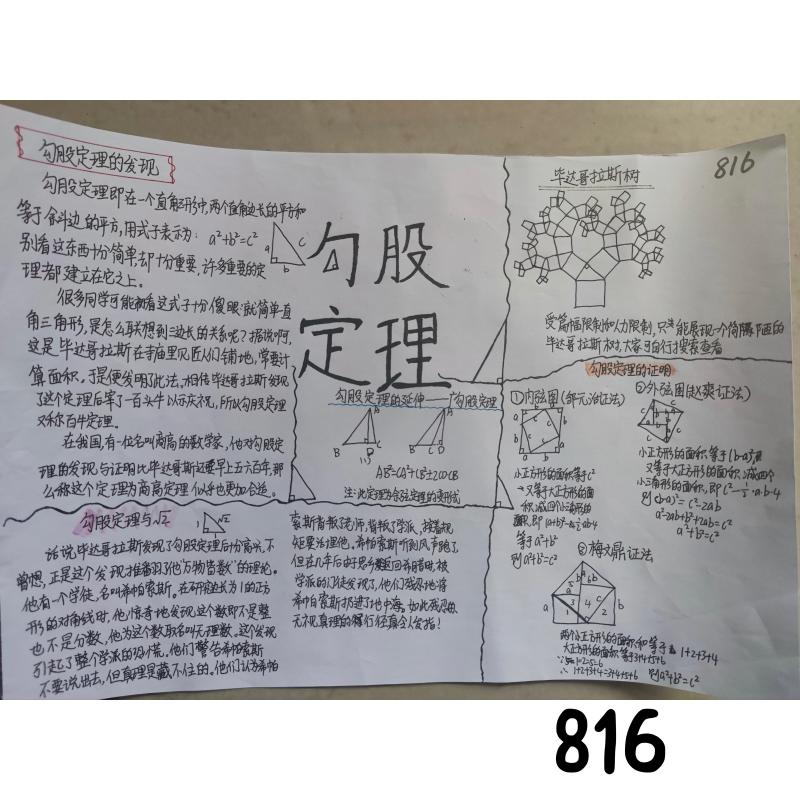 勾股定理的发现
勾股定理即在一个直角三角形中,两个直角边长的平方和
等于斜边的平方,用式子表示为: a²+b²=c²
别看这东西十分简单却十分重要,许多重要的定
理都建立在它之上。
a
c
b
很多同学可能初看这式子十分傻眼:就简单直
角三角形,是怎么联想到三边长的关系呢?据说啊,
这是毕达哥拉斯在寺庙里见匠人们铺地,常要计
算面积,于是便发明了此法,相传毕达哥拉斯发现
了这个定后宰了一百头牛以示庆祝,所以勾股定理
又称百牛定理.
在我国,有一位名叫商高的数学家,他对勾股定
理的发现与证明比毕达哥斯拉要早上五六百年,那
么称这个定理为商高定理似乎也更加合适。
勾股
定理
勾股定理的延伸——广勾股定理
A
B
D
C
A
B
C
D
AB²=CA²+CB²±2CD·CB
注:此定理为余弦定理的变形式
毕达哥拉斯树
816
受篇幅限制和人力限制,只能展现一个简陋
毕达哥拉斯树,大家可自行搜索查看
勾股定理的证明
①内弦图(邹元治证法)
小正方形的面积等于c²
又等于大正方形的面
积减四个小三角形的
面积,即(a+b)²-4·½ab
等于a²+b²
则a²+b²=c²
②外弦图(赵爽证法)
小正方形的面积等于(b-a)²
又等于大正方形的面积减四个
小三角形的面积,即c²-½·a·b·4
则(b-a)²=c²-2ab
a²-2ab+b²+2ab=c²
a²+b²=c²
③梅文鼎证法
a
b
c
两个小正方形的面积和等于1+2+3+4
大正方形的面积等于3+4+5+6
∴1+2+3+4=3+4+5+6
则a²+b²=c²
勾股定理与√2
1
√2
1
话说毕达哥拉斯发现了勾股定理后份高兴,不
曾想,正是这个发现推翻了他“万物皆数”的理论。
他有一个学徒,名叫希帕索斯。在研究边长为1的正方
形的对角线时,他惊奇地发现这个数即不是整
也不是分数,他为这个数取名叫无理数。这个发现
引起了整个学派的恐慌。他们警告希帕索斯
不要说出去,但真理是藏不住的。他们认为希帕
索斯背叛了老师,背叛了学派,按着规
矩要活埋他。希帕索斯听到风声跑了,
但在几年后由于思乡返回希腊时,被
学派的门徒发现了,他们残忍地将
希帕索斯扔进了地中海。如此残忍
无视真理的行径真令人发指!
816